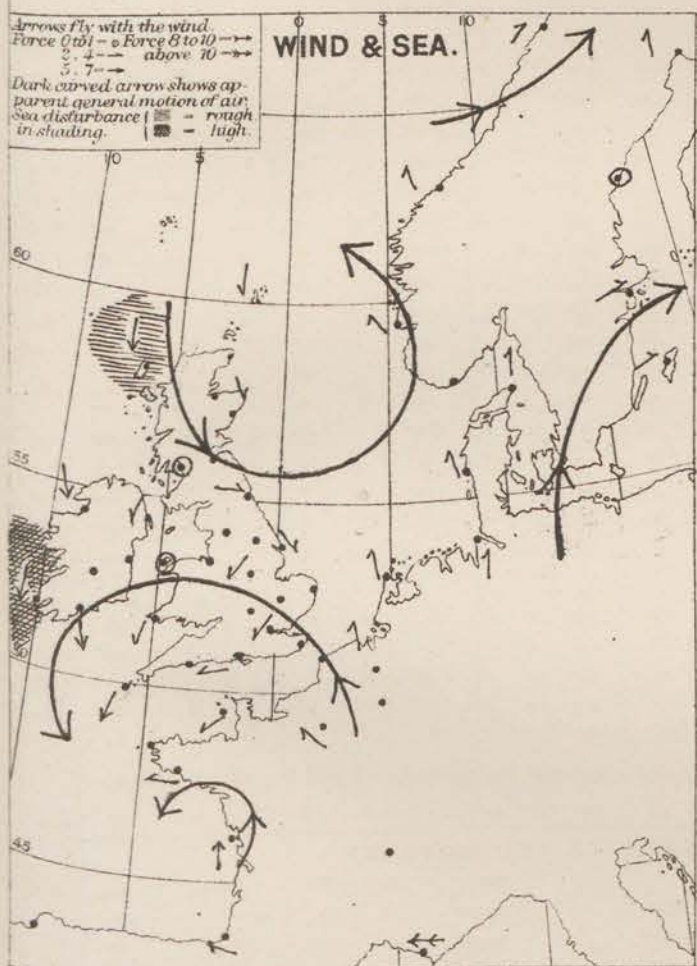 Arrows fly with the wind.
Force 0 to 1 - Force 8 to 10 -
2. 4 - above 10 -
5. 7 -
Dark curved arrow shows ap-
parent general motion of air.
Sea disturbance - rough
in shading. - high.
WIND & SEA.
0 5 10
10 5
60
55
45